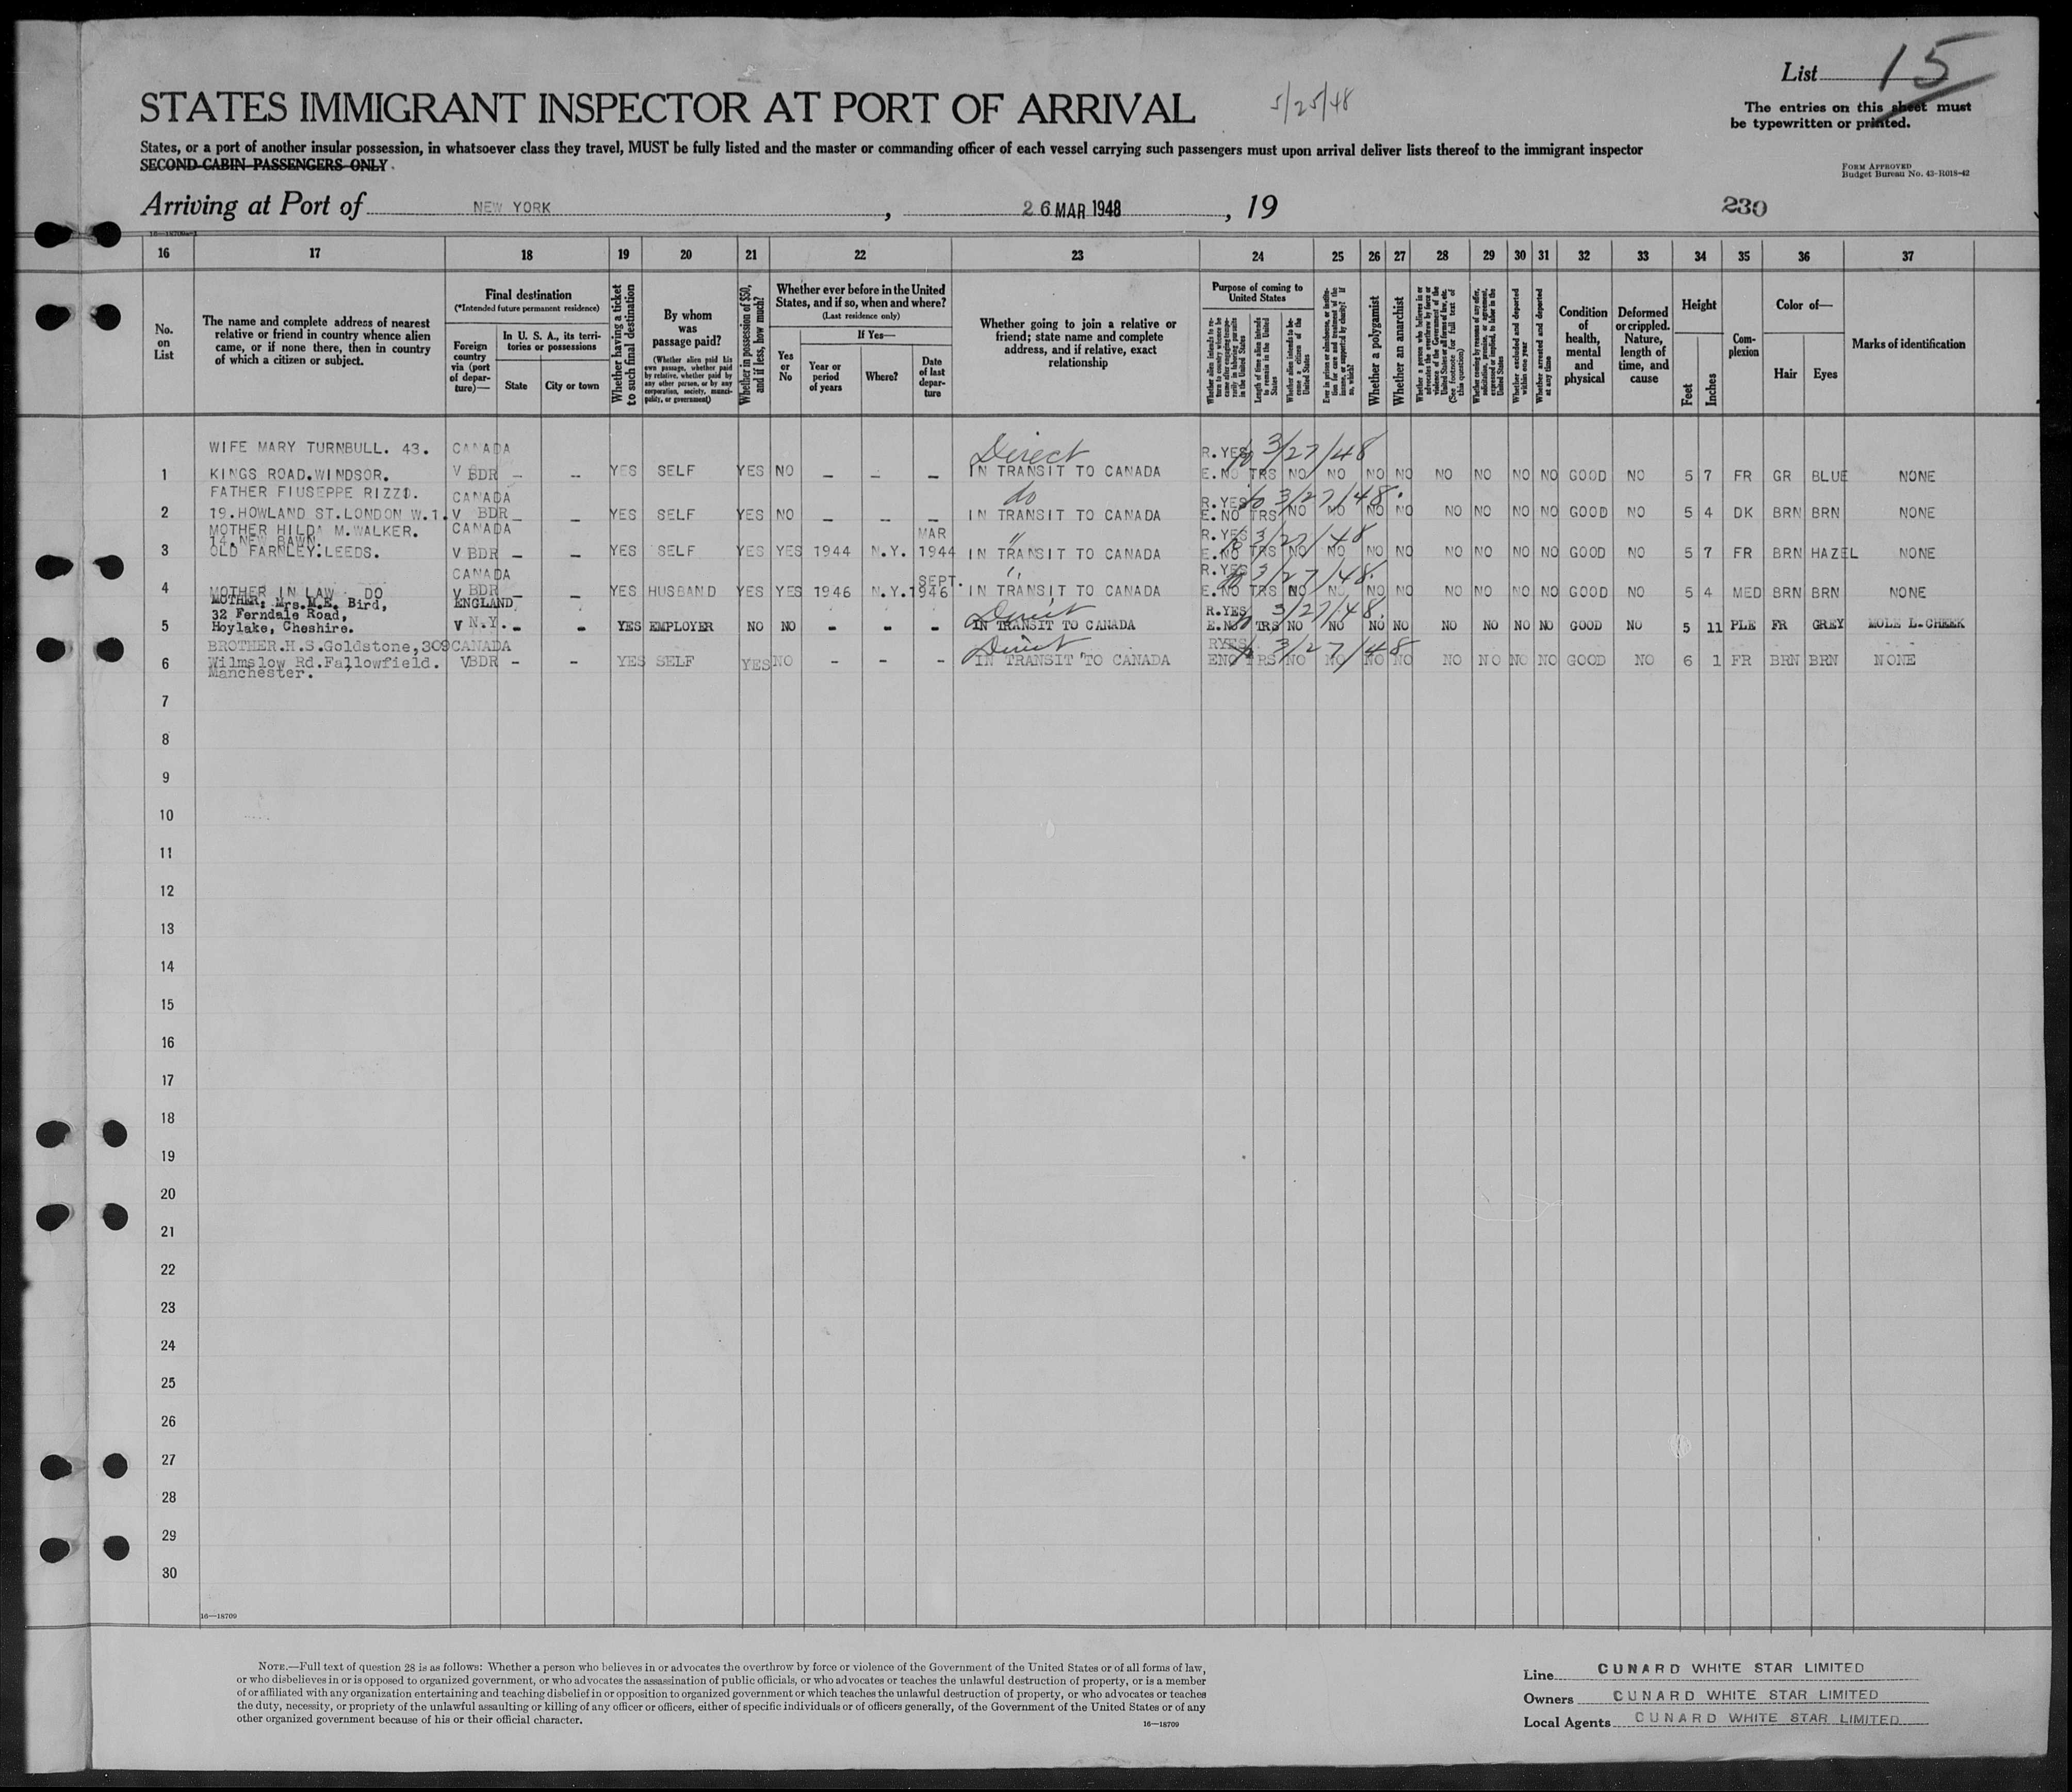 List 15
STATES IMMIGRANT INSPECTOR AT PORT OF ARRIVAL 5/25/48
The entries on this sheet must
be typewritten or printed.
States, or a port of another insular possession, in whatsoever class they travel, MUST be fully listed and the master or commanding officer of each vessel carrying such passengers must upon arrival deliver lists thereof to the immigrant inspector
SECOND-CABIN PASSENGERS ONLY
FORM APPROVED
Budget Bureau No. 43-R018-42
Arriving at Port of NEW YORK, 26 MAR 1948, 19
230
16 17 18 19 20 21 22 23 24 25 26 27 28 29 30 31 32 33 34 35 36 37
No. on List
The name and complete address of nearest relative or friend in country whence alien came, or if none there, then in country of which a citizen or subject.
Final destination
(*Intended future permanent residence)
Foreign country via (port of departure)—
In U. S. A., its territories or possessions
State
City or town
Whether having a ticket to such final destination
By whom was passage paid?
(Whether alien paid his own passage, whether paid by relative, whether paid by any other person, or by any corporation, society, municipality, or government)
Whether in possession of $50, and if less, how much?
Whether ever before in the United States, and if so, when and where?
(Last residence only)
Yes or No
If Yes—
Year or period of years
Where?
Date of last departure
Whether going to join a relative or friend; state name and complete address, and if relative, exact relationship
Purpose of coming to United States
Length of time alien intends to remain in the United States
Whether alien intends to become a citizen of the United States
Whether a polygamist
Whether an anarchist
(See footnote for full text of this question)
Whether excluded and deported within one year
Whether arrested and deported at any time
Condition of health, mental and physical
Deformed or crippled. Nature, length of time, and cause
Height
Feet
Inches
Complexion
Color of—
Hair
Eyes
Marks of identification
WIFE MARY TURNBULL. 43. CANADA Direct R.YES 3/27/48
1 KINGS ROAD.WINDSOR. V BDR – – YES SELF YES NO – – – IN TRANSIT TO CANADA E.NO TRS NO NO NO NO NO NO NO NO GOOD NO 5 7 FR GR BLUE NONE
FATHER FIUSEPPE RIZZI. CANADA do R.YES 3/27/48.
2 19.HOWLAND ST.LONDON W.1. V BDR – – YES SELF YES NO – – – IN TRANSIT TO CANADA E.NO TRS NO NO NO NO NO NO NO NO GOOD NO 5 4 DK BRN BRN NONE
MOTHER HILDA M.WALKER. CANADA MAR " R.YES 3/27/48
14.NEW BAWN.
3 OLD FARNLEY.LEEDS. V BDR – – YES SELF YES YES 1944 N.Y. 1944 IN TRANSIT TO CANADA E.NO TRS NO NO NO NO NO NO NO NO GOOD NO 5 7 FR BRN HAZEL NONE
CANADA SEPT. " R.YES 3/27/48.
4 MOTHER IN LAW DO V BDR – – YES HUSBAND YES YES 1946 N.Y. 1946 IN TRANSIT TO CANADA E.NO TRS NO NO NO NO NO NO NO NO GOOD NO 5 4 MED BRN BRN NONE
MOTHER: Mrs.M.E. Bird, ENGLAND Direct R.YES 3/27/48
32 Ferndale Road,
5 Hoylake, Cheshire. V N.Y. – – YES EMPLOYER NO NO – – – IN TRANSIT TO CANADA E.NO TRS NO NO NO NO NO NO NO NO GOOD NO 5 11 PLE FR GREY MOLE L.CHEEK
BROTHER.H.S.Goldstone,309 CANADA Direct RYES 3/27/48
6 Wilmslow Rd.Fallowfield. VBDR – – YES SELF YES NO – – – IN TRANSIT TO CANADA ENO TRS NO NO NO NO NO NO NO NO GOOD NO 6 1 FR BRN BRN NONE
Manchester.
7
8
9
10
11
12
13
14
15
16
17
18
19
20
21
22
23
24
25
26
27
28
29
30
16—18709
NOTE.—Full text of question 28 is as follows: Whether a person who believes in or advocates the overthrow by force or violence of the Government of the United States or of all forms of law,
or who disbelieves in or is opposed to organized government, or who advocates the assassination of public officials, or who advocates or teaches the unlawful destruction of property, or is a member
of or affiliated with any organization entertaining and teaching disbelief in or opposition to organized government or which teaches the unlawful destruction of property, or who advocates or teaches
the duty, necessity, or propriety of the unlawful assaulting or killing of any officer or officers, either of specific individuals or of officers generally, of the Government of the United States or of any
other organized government because of his or their official character.
16—18709
Line CUNARD WHITE STAR LIMITED
Owners CUNARD WHITE STAR LIMITED
Local Agents CUNARD WHITE STAR LIMITED